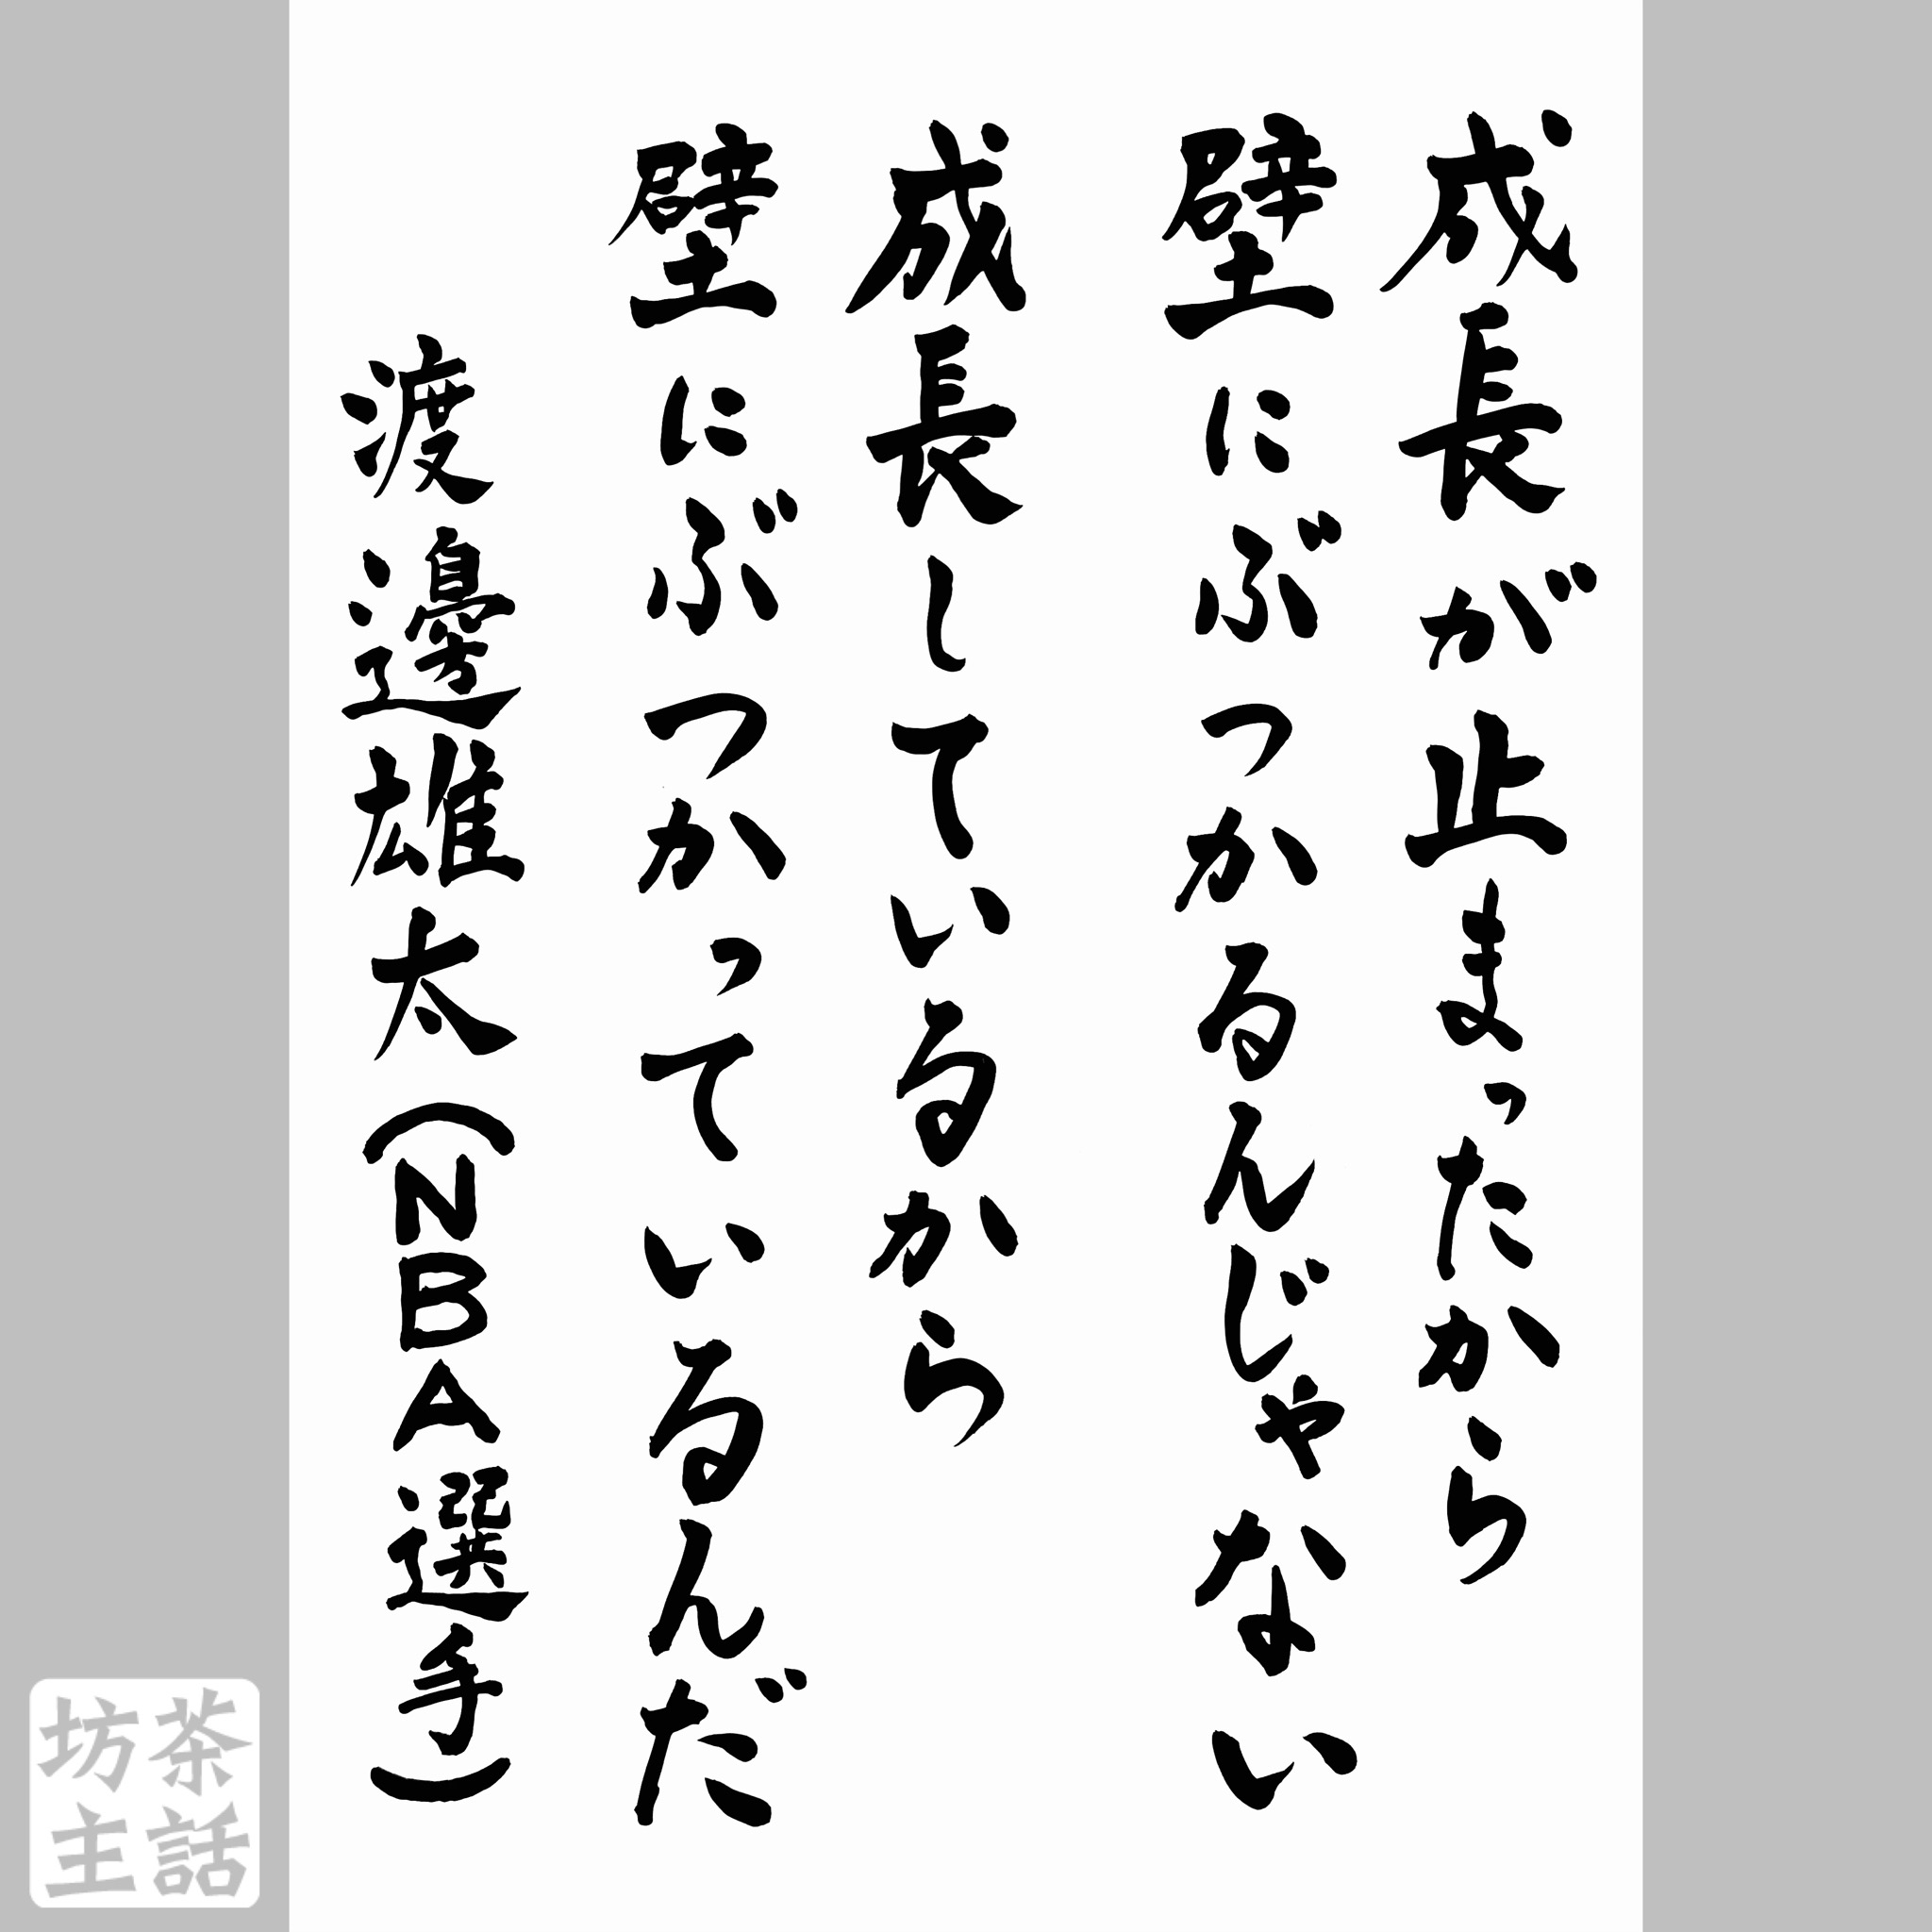 成長が止まったから
壁にぶつかるんじゃない
成長しているから
壁にぶつかっているんだ
渡邊雄太（NBA選手）
茶話
坊主